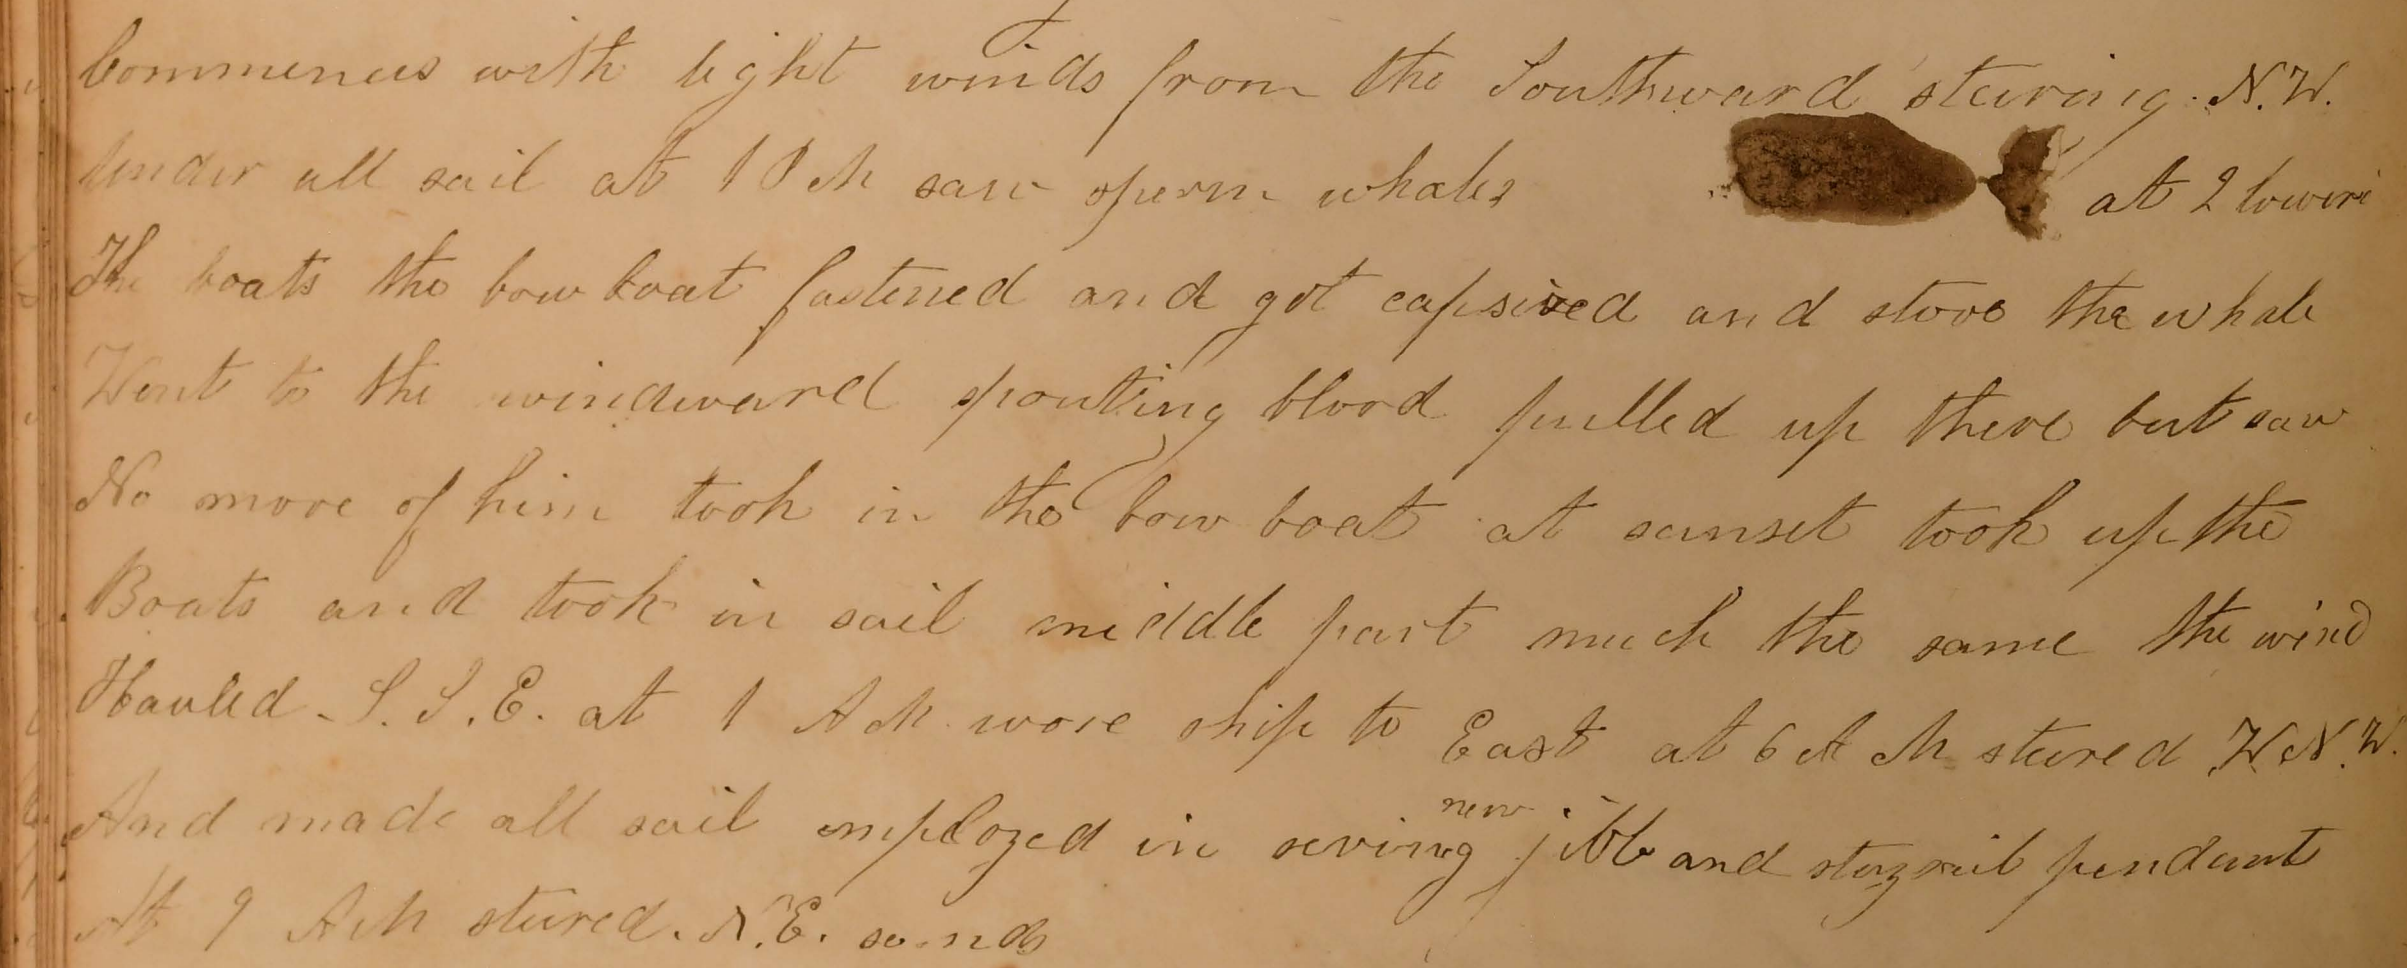 Commences with light winds from the Southward steering N.W.
Under all sail at 1 P M saw sperm whales at 2 lowerd
The boats the bow boat fastened and got capsized and stove the whale
Went to the windward spouting blood pulled up there but saw
No more of him took in the bow boat at sunset took up the
Boats and took in sail middle part much the same the wind
Hauled S. S. E. at 1 A M wore ship to East at 6 A M steered W.N.W.
And made all sail employed in reving new jibb and staysail pendant
At 9 A M steered N.E. so ends